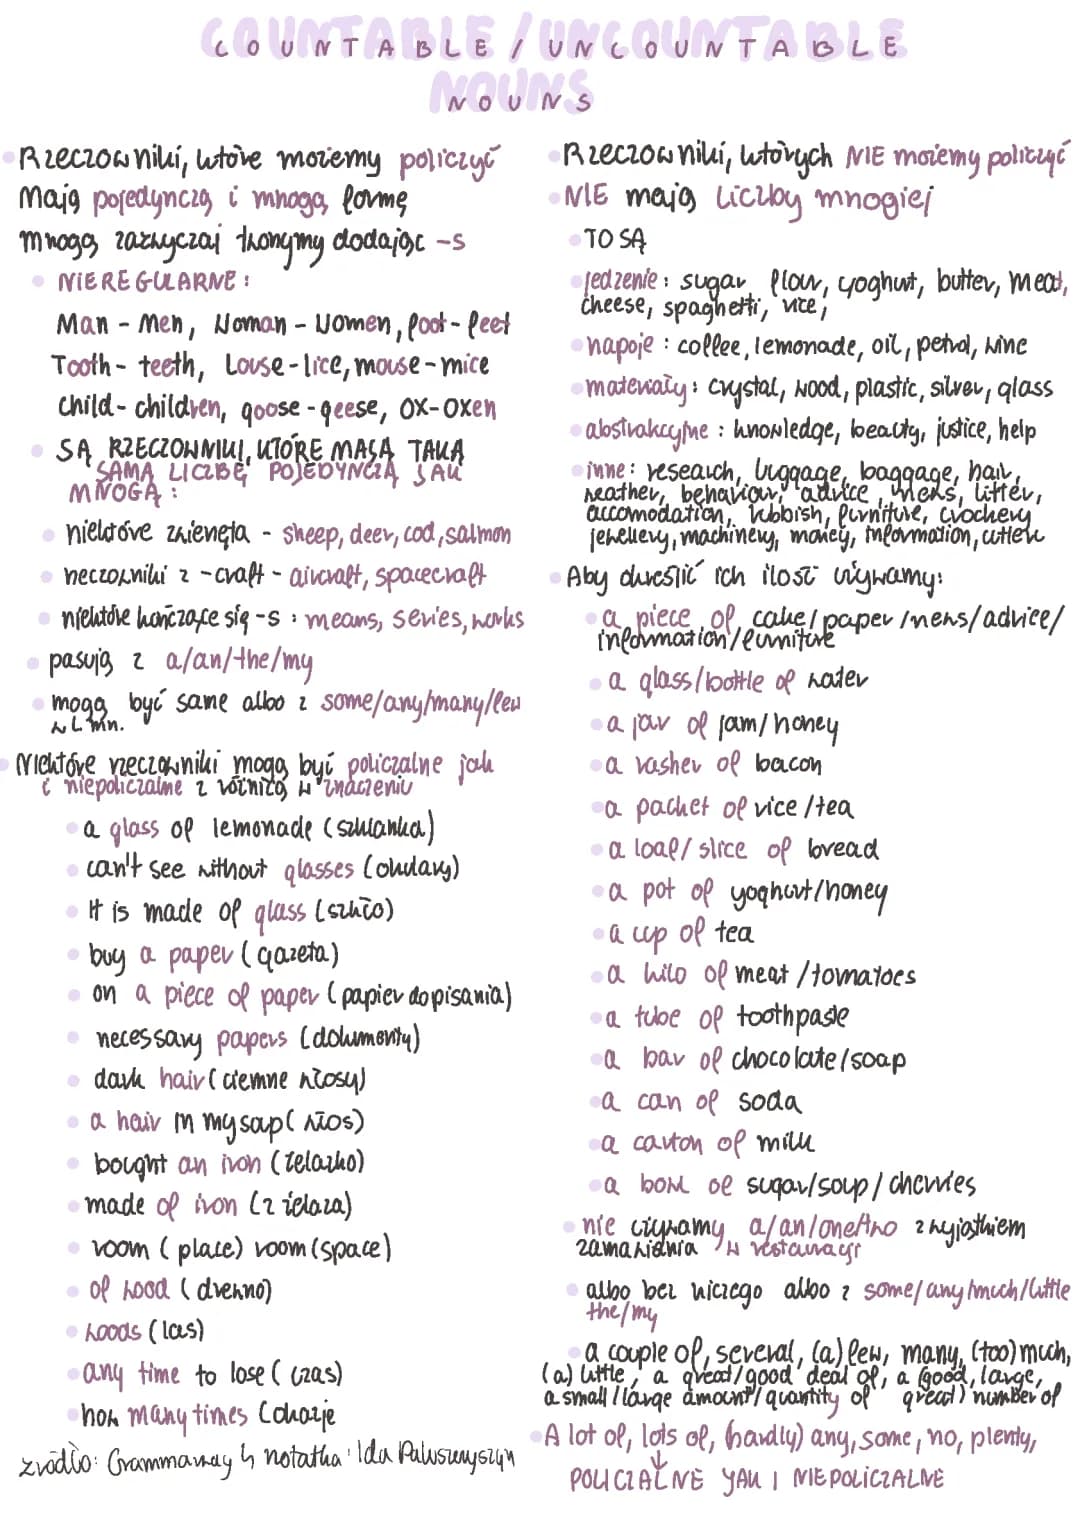 COUNTABLE / UNCOUNTABLE
NOUNS
Rzeczowniki, które możemy policzyć
Mają pojedynczą i mnogą formę
mnogą zazwyczaj tworzymy dodając -s
NIEREGULARNE:
Man - Men, Woman - Women, foot - feet
Tooth - teeth, Louse - lice, mouse - mice
Child - children, goose - geese, OX - OXen
SĄ RZECZOWNIKI, KTÓRE MAJĄ TAKĄ
SAMĄ LICZBĘ POJEDYNCZĄ JAK
MNOGĄ:
niektóre zwierzęta - sheep, deer, cod, salmon
rzeczowniki z -craft - aircraft, spacecraft
niektóre kończące się -s : means, series, works
pasują z a/an/the/my
mogą być same albo z some/any/many/few
w L. mn.
Niektóre rzeczowniki mogą być policzalne jak
i niepoliczalne z różnicą w znaczeniu
a glass of lemonade (szklanka)
can't see without glasses (okulary)
It is made of glass (szkło)
buy a paper (gazeta)
on a piece of paper (papier do pisania)
necessary papers (dokumenty)
dark hair (ciemne włosy)
a hair in my soup (włos)
bought an iron (żelazko)
made of iron (z żelaza)
room (place) room (space)
of wood (drewno)
woods (las)
any time to lose (czas)
how many times (okazje
źródło: Grammarway 4 notatka: Ida Paluszczyszyn
Rzeczowniki, których NIE możemy policzyć
NIE mają liczby mnogiej
TO SĄ
jedzenie: sugar, flour, yoghurt, butter, meat,
cheese, spaghetti, rice,
napoje : coffee, lemonade, oil, petrol, wine
materiały: crystal, wood, plastic, silver, glass
abstrakcyjne : knowledge, beauty, justice, help
inne: research, luggage, baggage, hair,
weather, behaviour, advice, news, litter,
accomodation, rubbish, furniture, crockery
jewellery, machinery, money, information, cutlery
Aby określić ich ilość używamy:
a piece of cake/paper/news/advice/
information/furniture
a glass/bottle of water
a jar of jam/honey
a rasher of bacon
a packet of rice/tea
a loaf/slice of bread
a pot of yoghurt/honey
a cup of tea
a kilo of meat/tomatoes
a tube of toothpaste
a bar of chocolate/soap
a can of soda
a carton of milk
a bowl of sugar/soup/cherries
nie używamy a/an/one/two z wyjątkiem
zamawiania w restauracji
albo bez niczego albo z some/any/much/little
the/my
a couple of, several, (a) few, many, (too) much,
(a) little, a great/good deal of, a (good, large,
a small/large amount/quantity of great) number of
A lot of, lots of, (hardly) any, some, no, plenty,
↓
POLICZALNE JAK I NIEPOLICZALNE